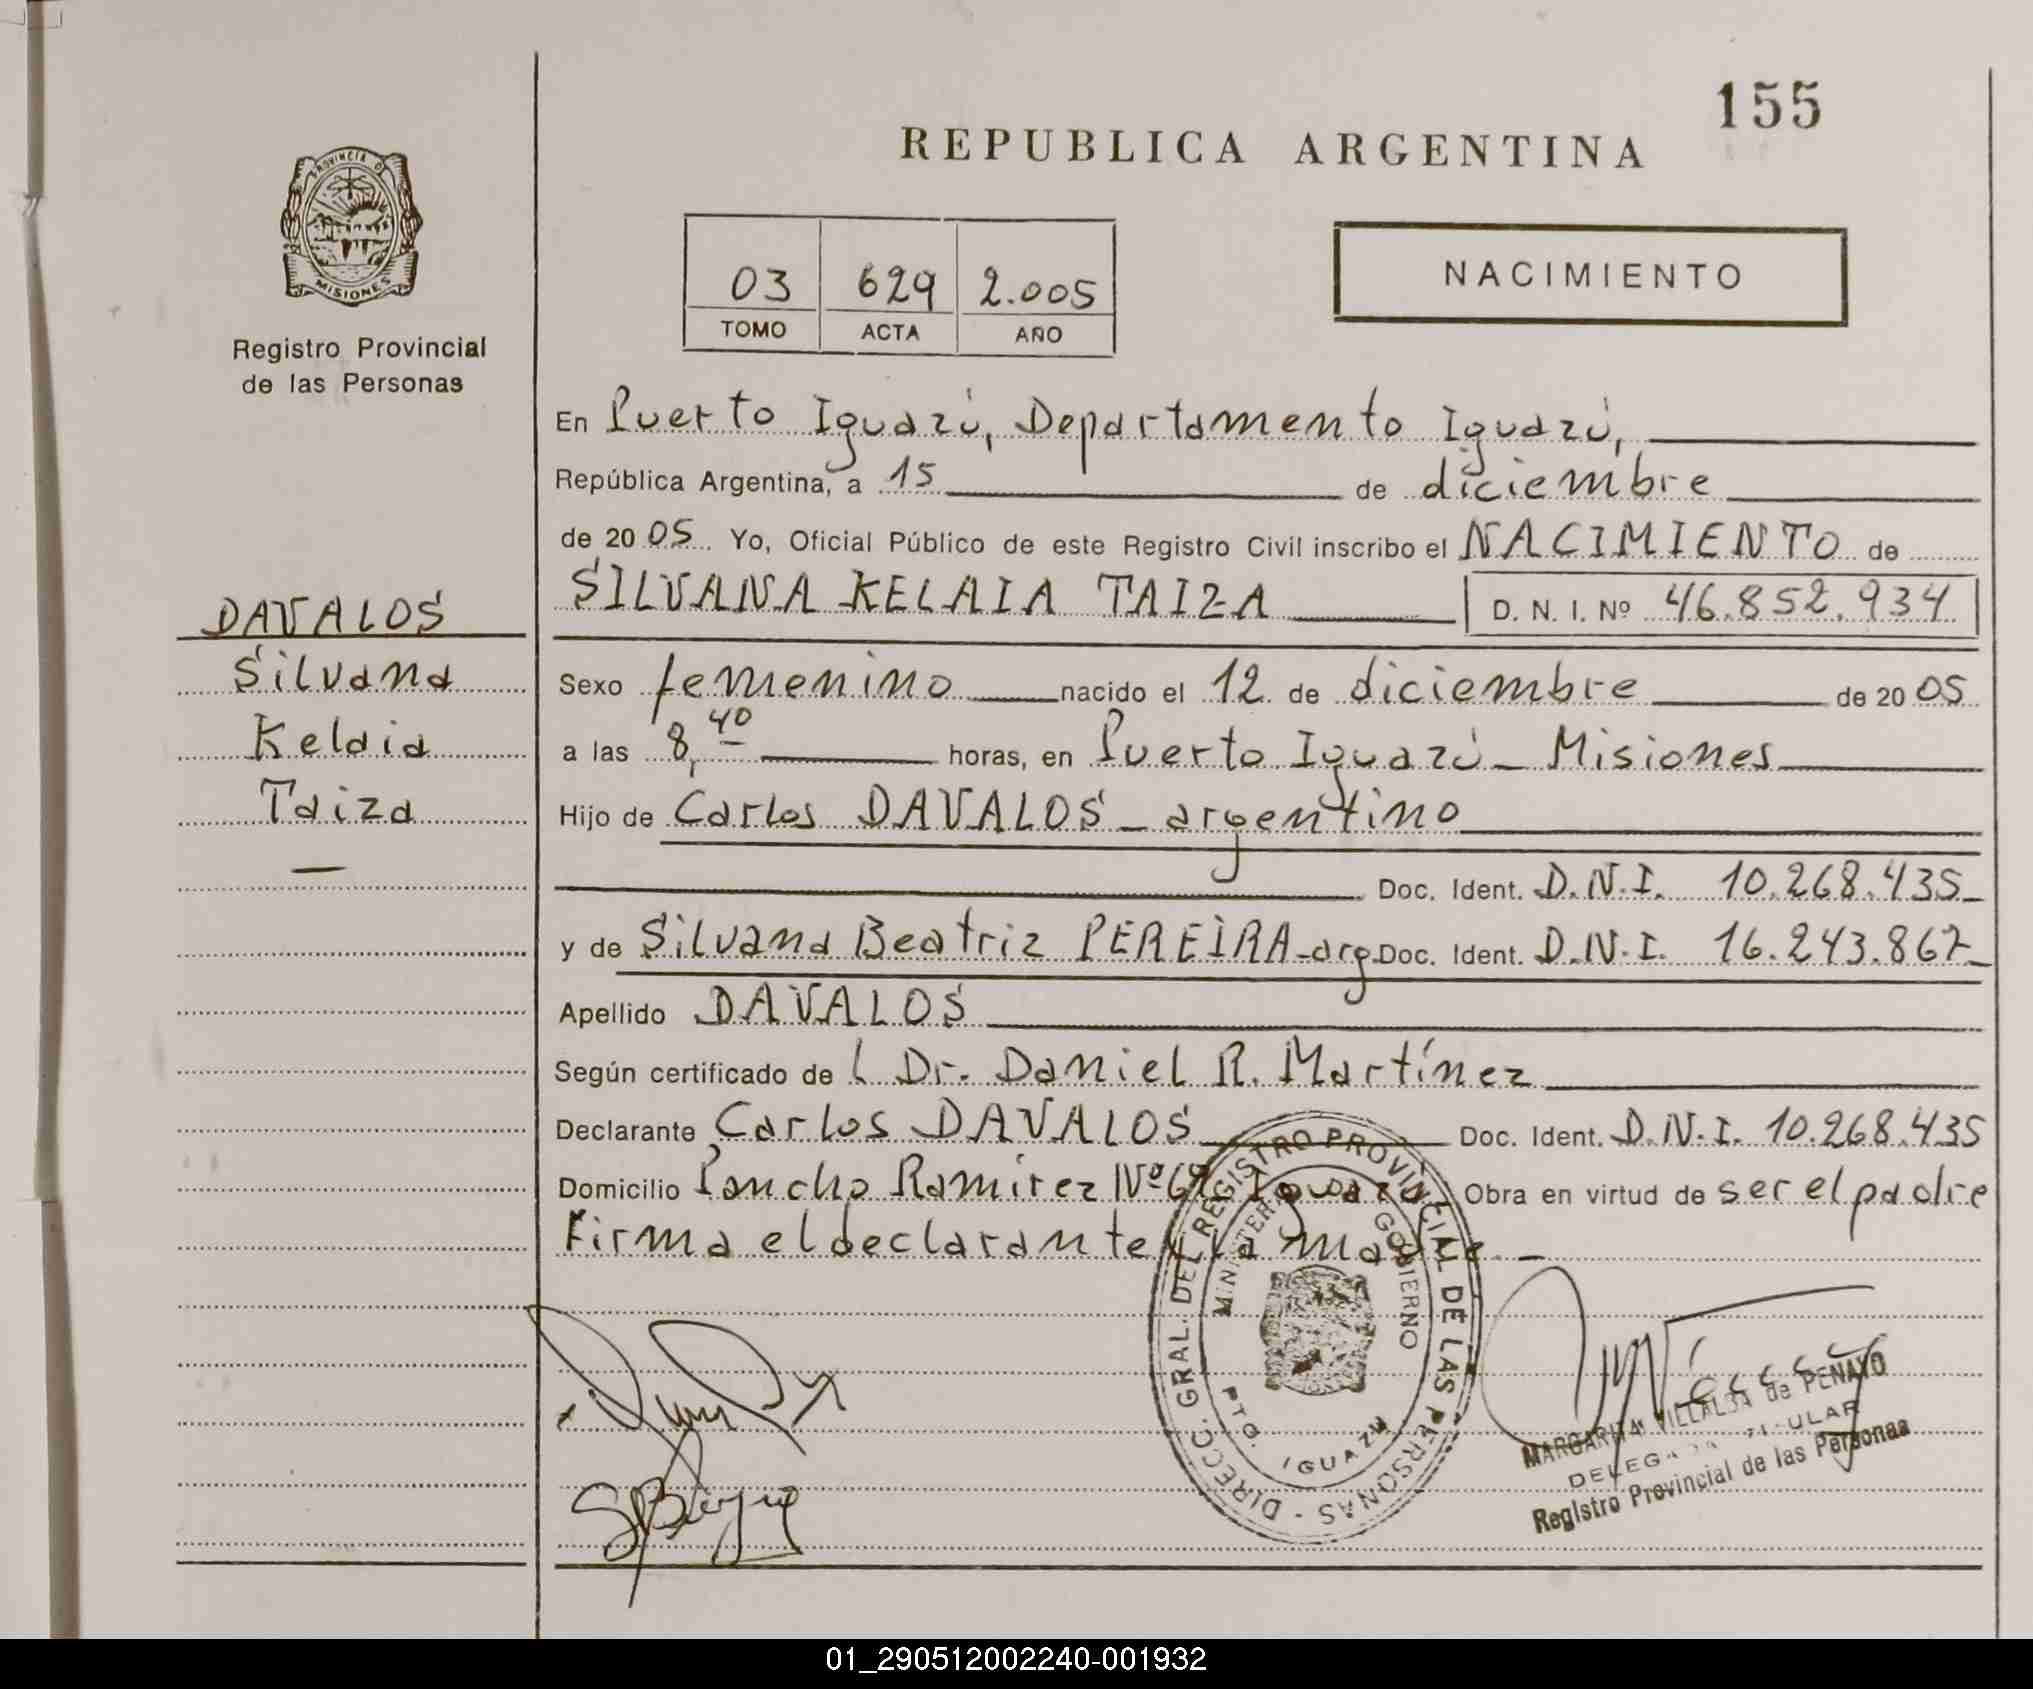 155
REPUBLICA ARGENTINA
PROVINCIA DE
MISIONES
Registro Provincial
de las Personas
03 629 2.005
TOMO ACTA AÑO
NACIMIENTO
En Puerto Iguazú, Departamento Iguazú,
República Argentina, a 15 de diciembre
de 20 05. Yo, Oficial Público de este Registro Civil inscribo el NACIMIENTO de
SILVANA KELAIA TAIZA D. N. I. Nº 46.852.934
DAVALOS
Silvana
Kelaia
Taiza
Sexo femenino nacido el 12 de diciembre de 20 05
a las 8,40 horas, en Puerto Iguazú - Misiones
Hijo de Carlos DAVALOS - argentino
Doc. Ident. D.N.I. 10.268.435-
y de Silvana Beatriz PEREIRA-arg. Doc. Ident. D.N.I. 16.243.867-
Apellido DAVALOS
Según certificado de l Dr. Daniel R. Martínez
Declarante Carlos DAVALOS Doc. Ident. D.N.I. 10.268.435
Domicilio Pancho Ramirez Nº Iguazú Obra en virtud de ser el padre
Firma el declarante y la madre. -
DIRECC. GRAL. DEL REGISTRO PROVINCIAL DE LAS PERSONAS -
MINISTERIO GOBIERNO
PTO. IGUAZU
MARGARITA VILLALBA de PENAYO
DELEGADA TITULAR
Registro Provincial de las Personas
01_290512002240-001932